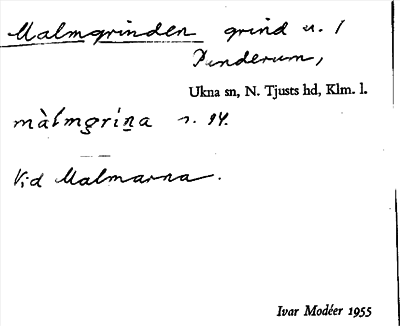 Malmgrinden grind u. 1
Penderum,
Ukna sn, N. Tjusts hd, Klm. l.
màlmgrina s. 94.
Vid Malmarna.
Ivar Modéer 1955